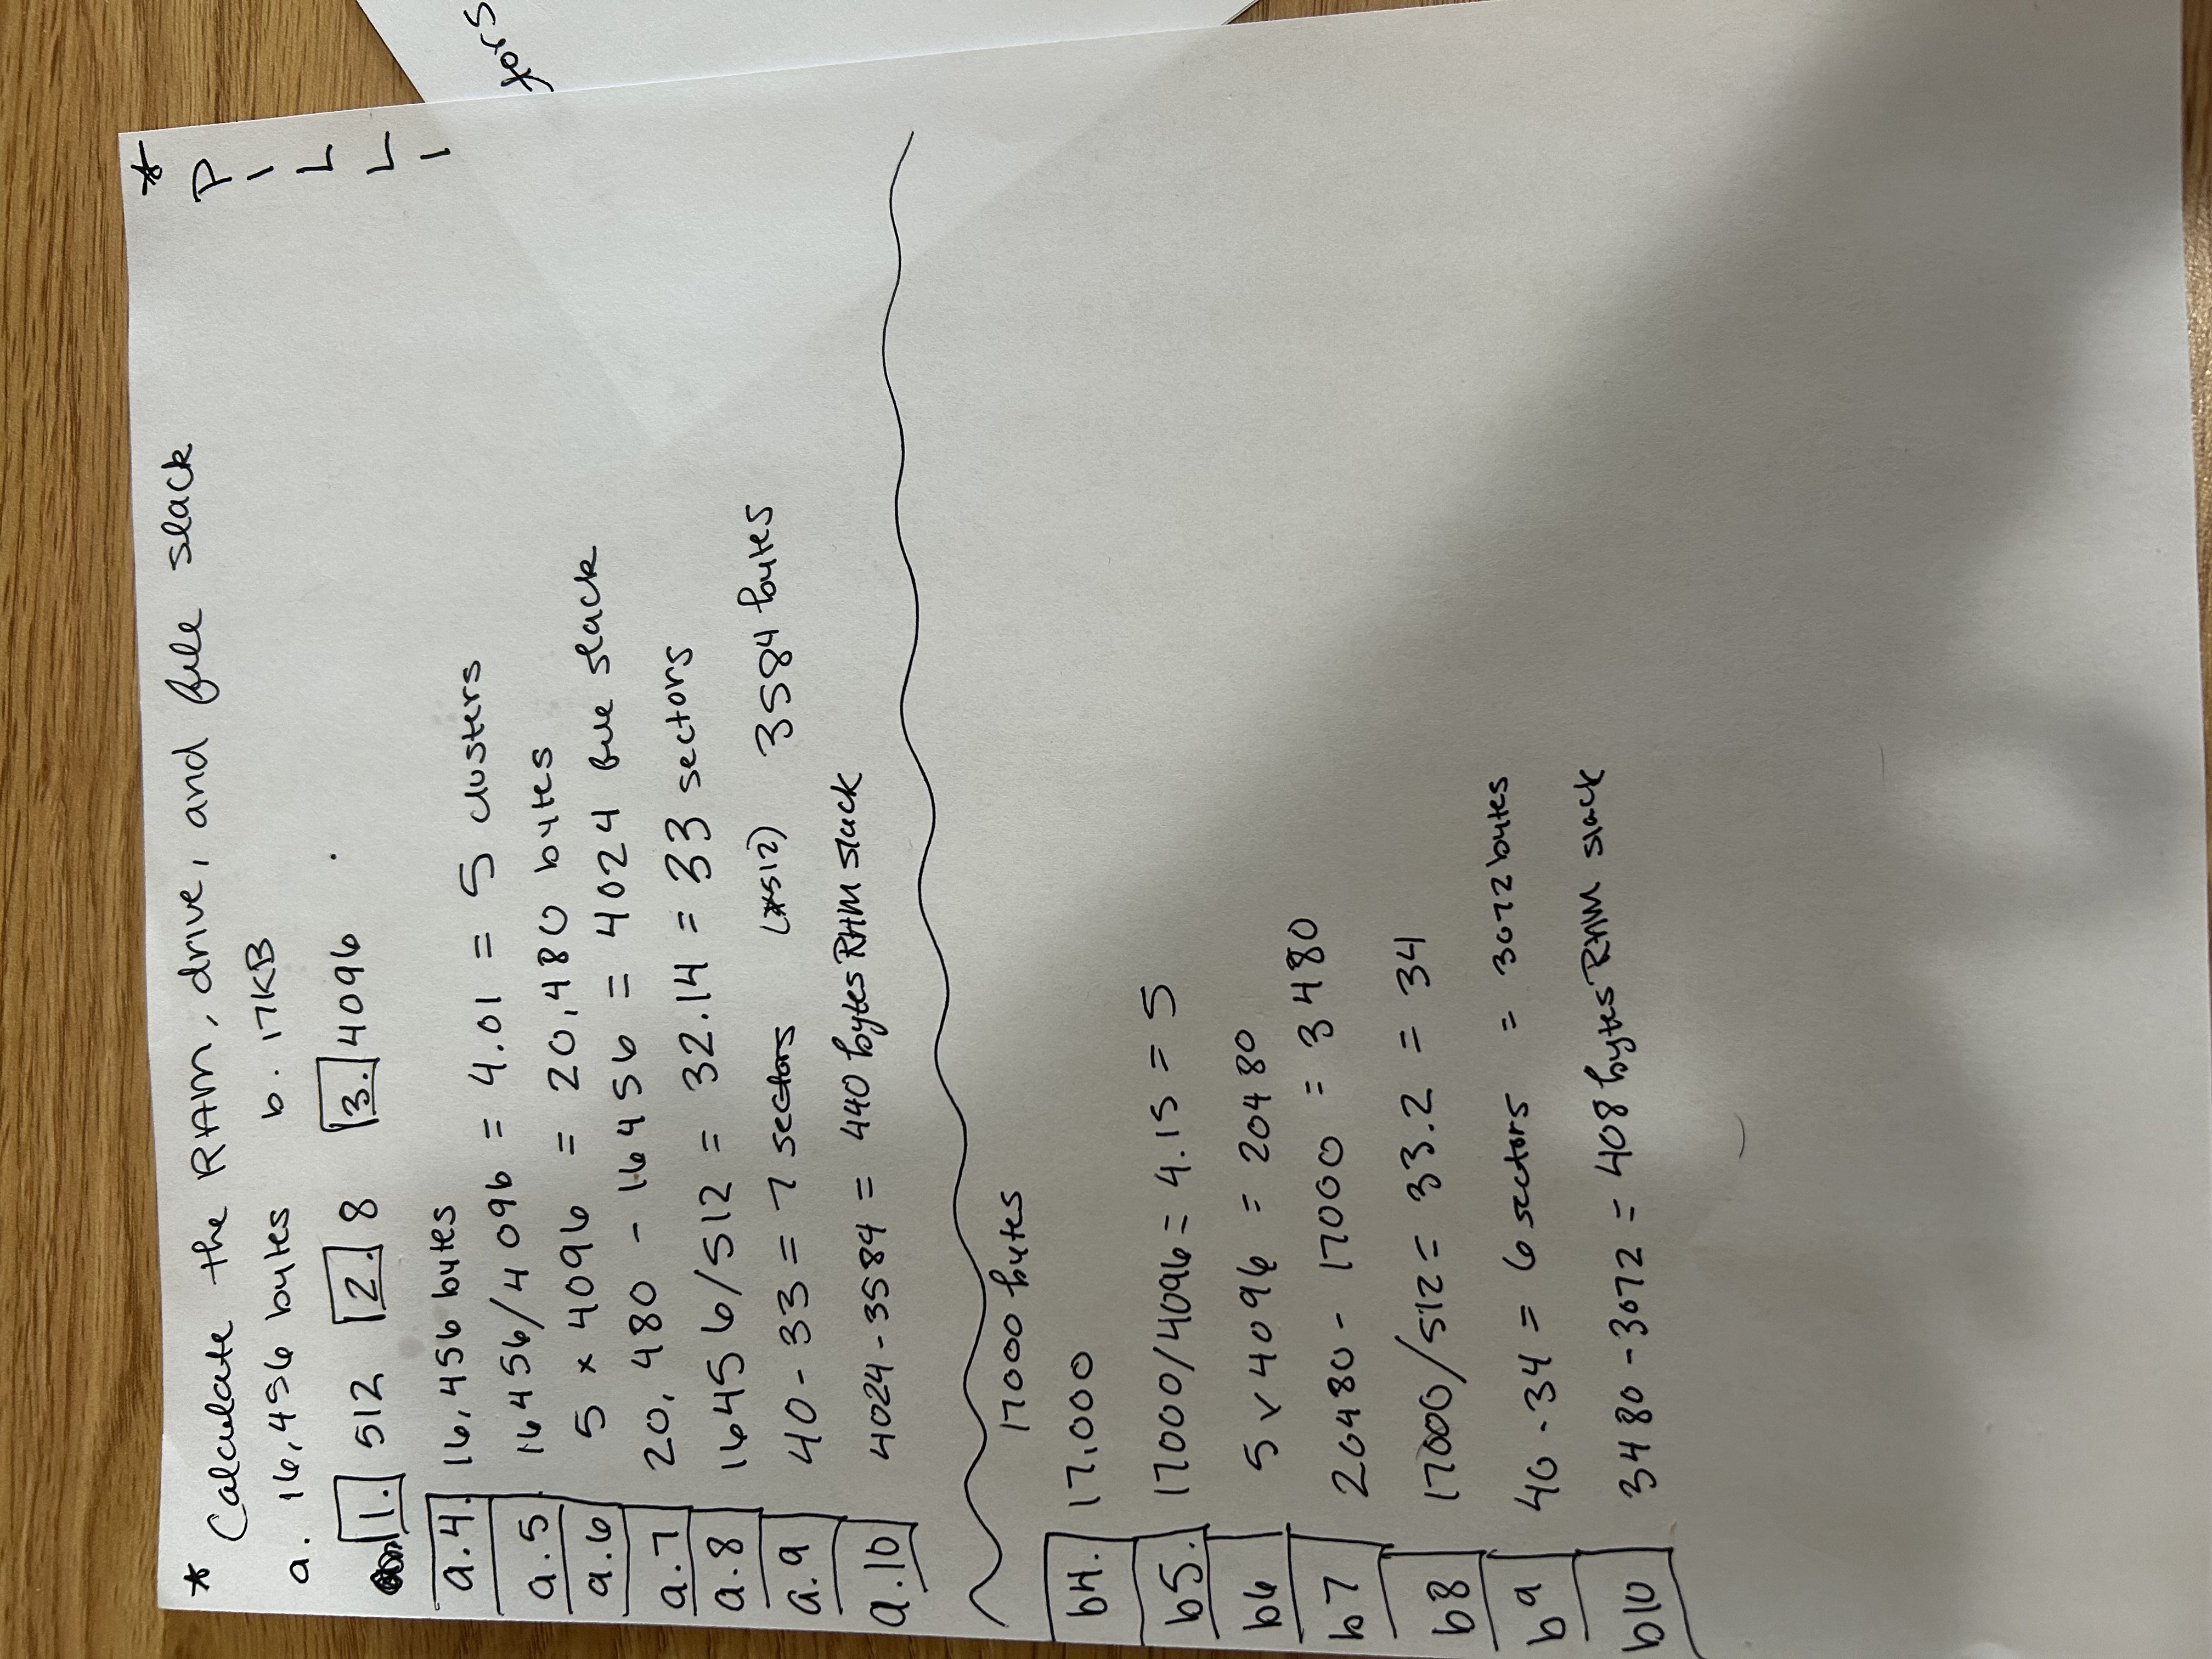 * Calculate the RAM, drive, and file slack
a. 16,456 bytes b. 17KB
1. 512 2. 8 3. 4096
a.4. 16,456 bytes
a.5. 16456/4096 = 4.01 = 5 clusters
a.6 5 × 4096 = 20,480 bytes
a.7 20,480 - 16456 = 4024 file slack
a.8 16456/512 = 32.14 = 33 sectors
a.9 40 - 33 = 7 sectors (*512) 3584 bytes
a.10 4024 - 3584 = 440 bytes RAM slack
17000 bytes
b4. 17,000
b5. 17000/4096 = 4.15 = 5
b6 5 × 4096 = 20480
b7 20480 - 17000 = 3480
b8 17000/512 = 33.2 = 34
b9 40 - 34 = 6 sectors = 3072 bytes
b10 3480 - 3072 = 408 bytes RAM slack
*
P
I
L
L
I
tors